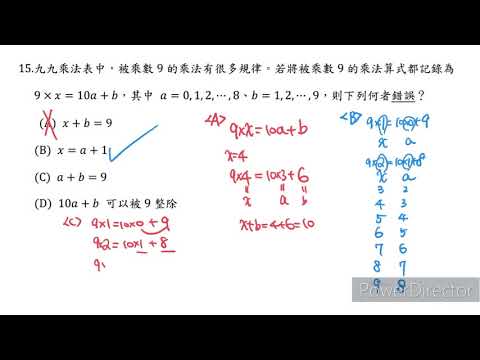 15.九九乘法表中，被乘數 9 的乘法有很多規律。若將被乘數 9 的乘法算式都記錄為
9 × x = 10a + b，其中 a = 0, 1, 2, ⋯, 8、b = 1, 2, ⋯, 9，則下列何者錯誤？
(A) x + b = 9
(B) x = a + 1
(C) a + b = 9
(D) 10a + b 可以被 9 整除
<C> 9×1=10×0+9
9×2=10×1+8
9
<A>
9×x=10a+b
x=4
9×4=10×3+6
x a b
x+b=4+6=10
<B>
9×1=10×0+9
x a
9×2=10×1+8
x a
3 2
4 3
5 4
6 5
7 6
8 7
9 8
PowerDirector